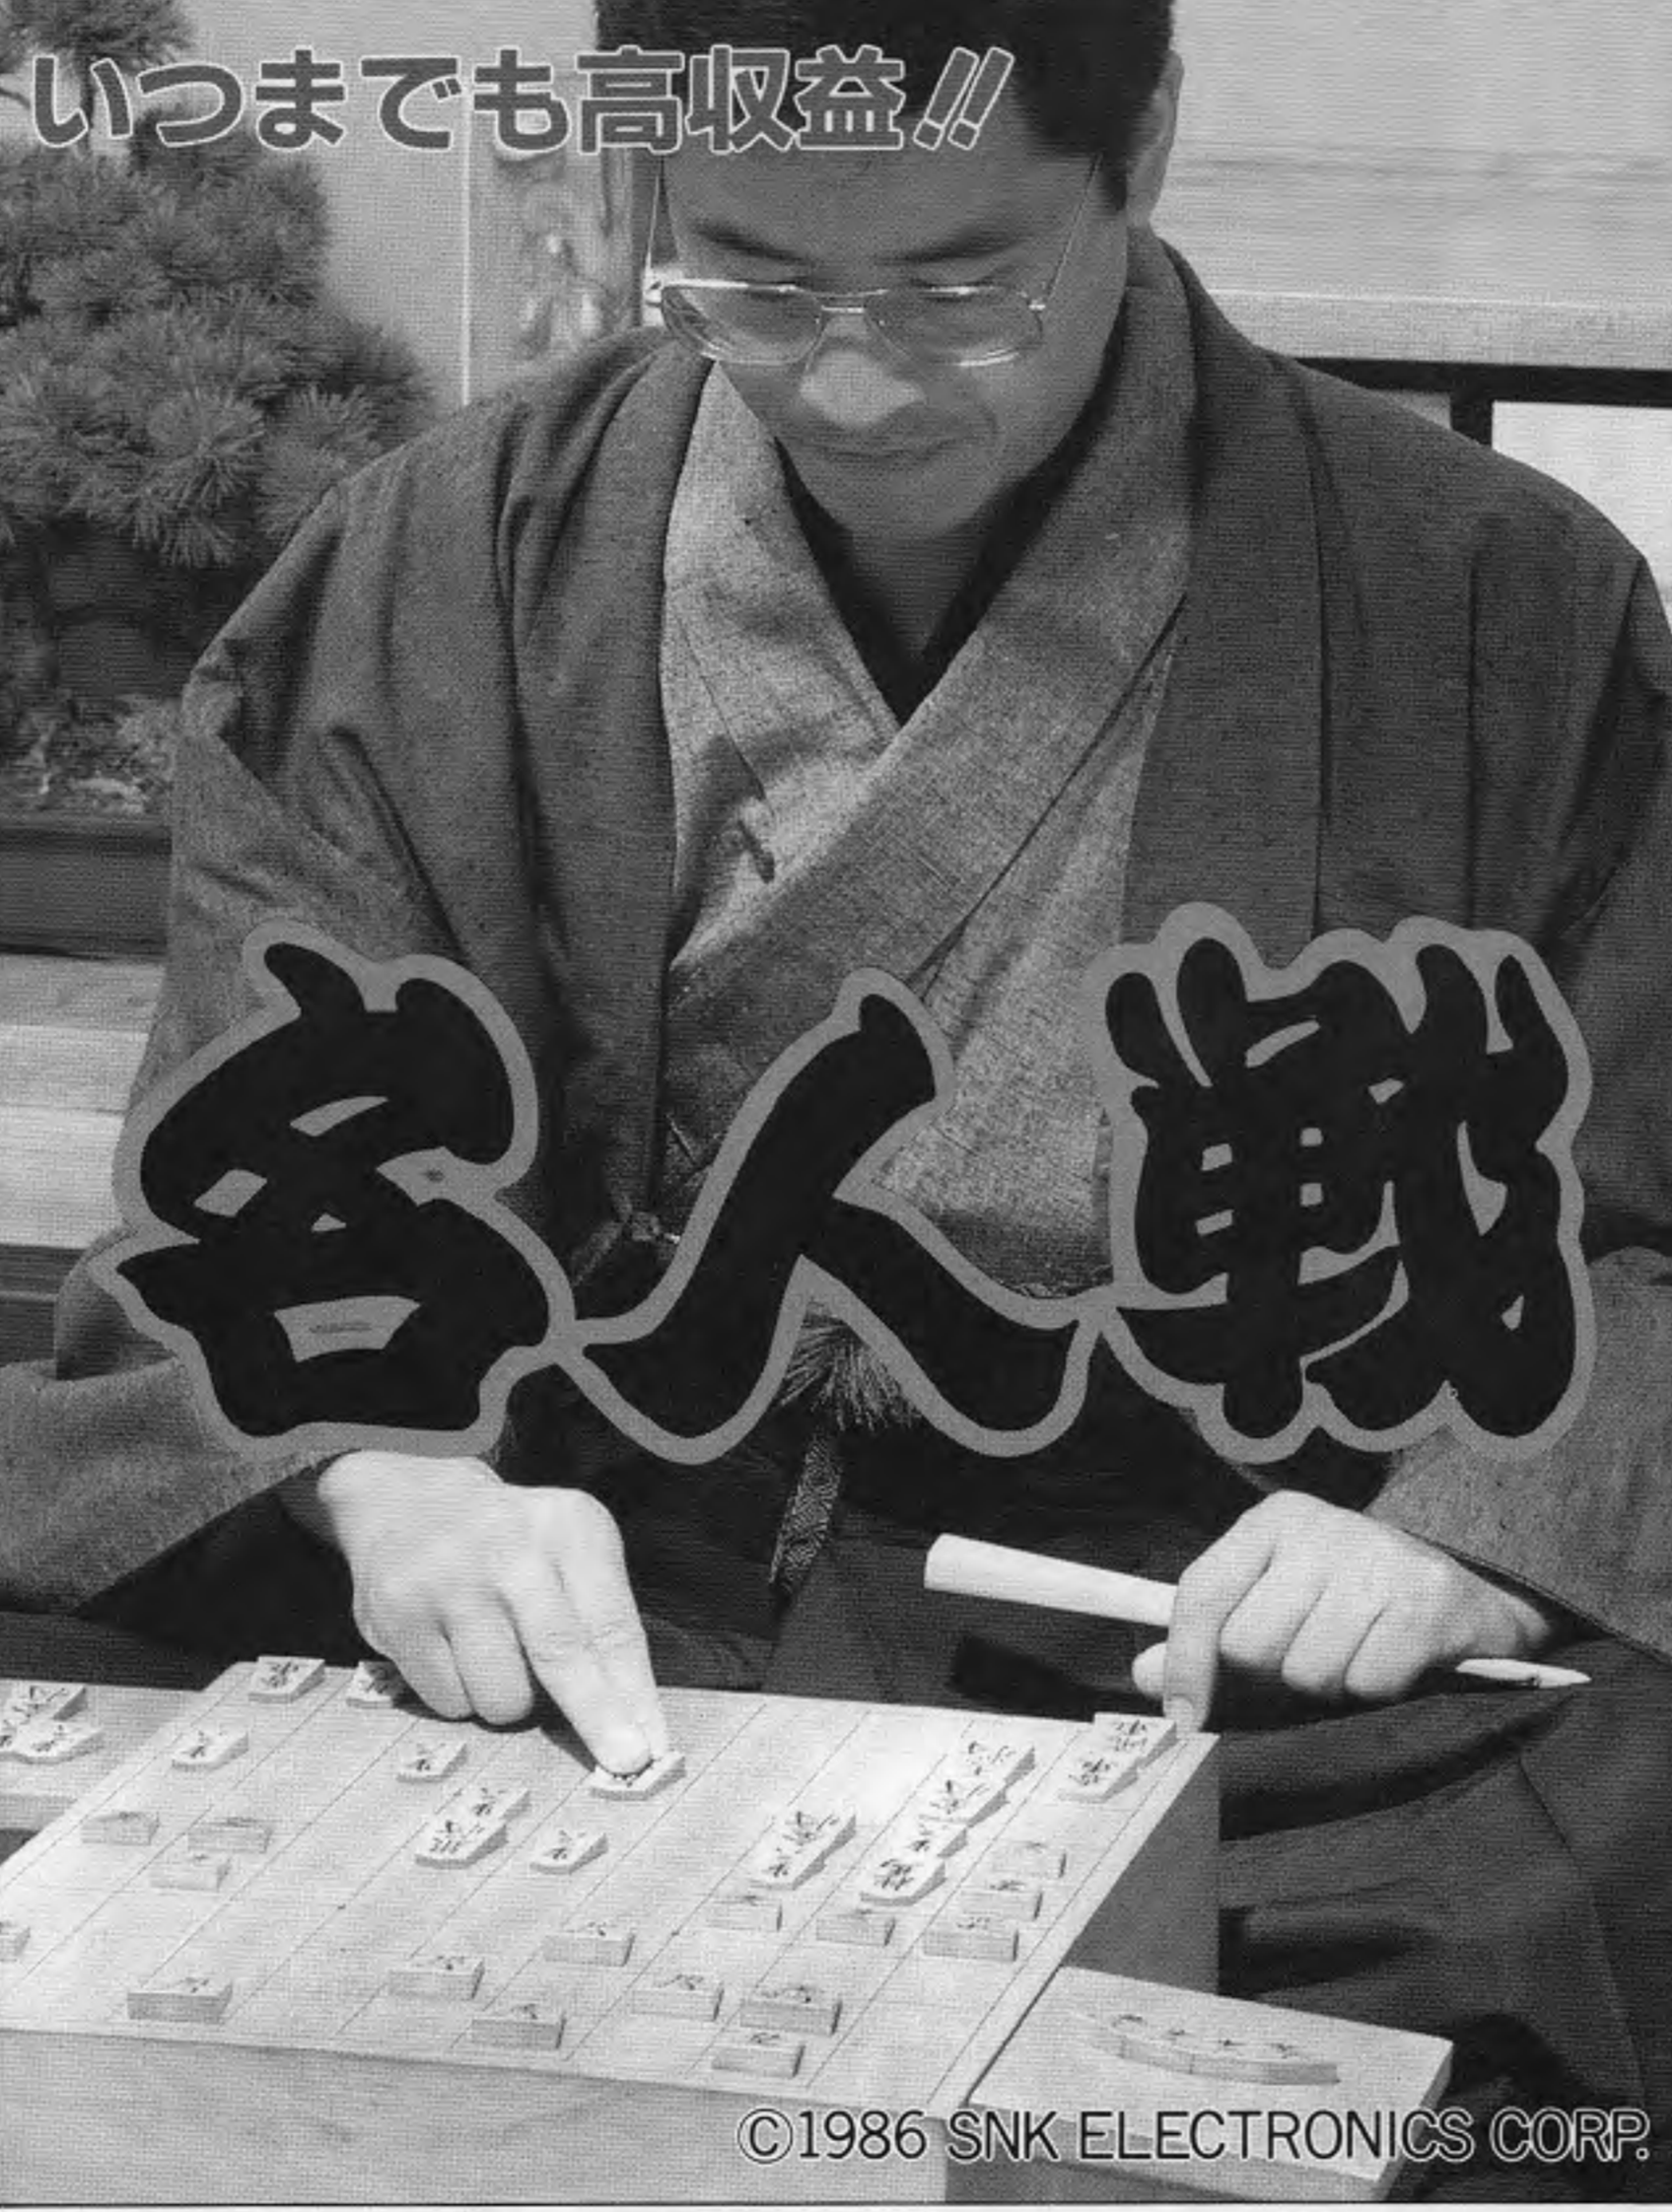 いつまでも高収益!!
名人戦
©1986 SNK ELECTRONICS CORP.